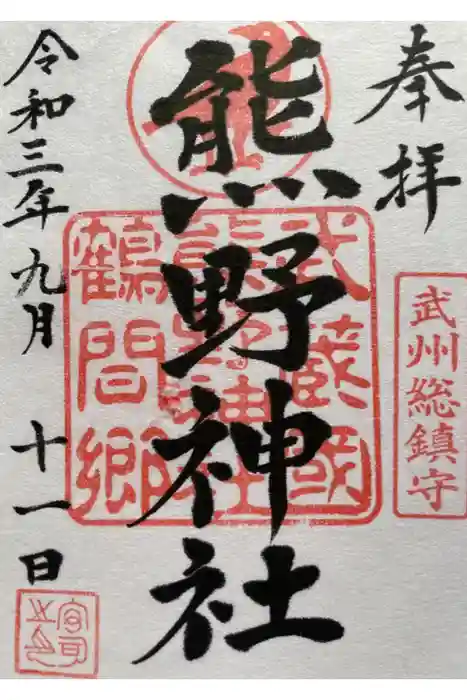 奉拝
武州総鎮守
熊野神社
武蔵國
熊野神社
鶴間郷
令和三年九月十一日